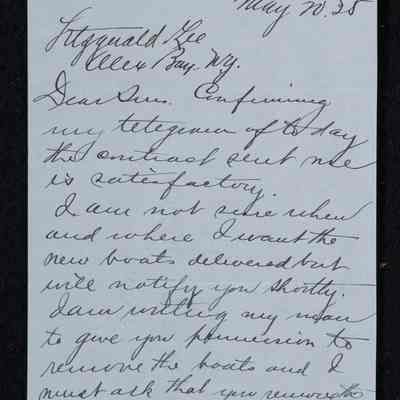 May 20. 25
Fitzgerald & Lee
Alex Bay. N.Y.
Dear Sirs. Confirming
my telegram of to day
the contract sent me
is satisfactory.
I am not sure when
and where I want the
new boats delivered but
will notify you shortly.
I am writing my man
to give you permission to
remove the boats and I
must ask that you remove